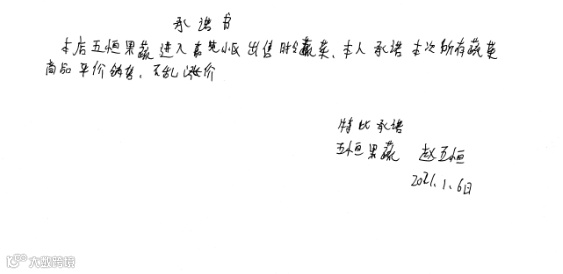 承诺书
本店五恒果蔬进入小区出售时令蔬菜、本人承诺本次所有蔬菜
商品平价销售、不乱涨价
特此承诺
五恒果蔬 赵五恒
2021.1.6日
大数跨境